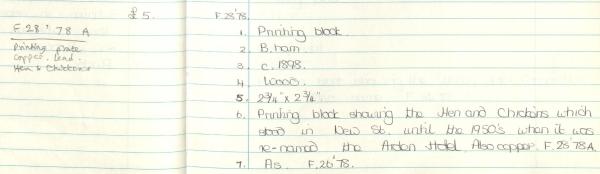 F 28'78 A
Printing plate
copper. Lead.
Hen & Chickens
£5.
F 28'78.
1. Printing block.
2. B.ham.
3. c. 1898.
4. Wood.
5. 2¾" x 2¾"
6. Printing block showing the Hen and Chickens which
stood in New St. until the 1950's when it was
re-named the Arden Hotel. Also copper. F.28'78A.
7. As. F.26'78.